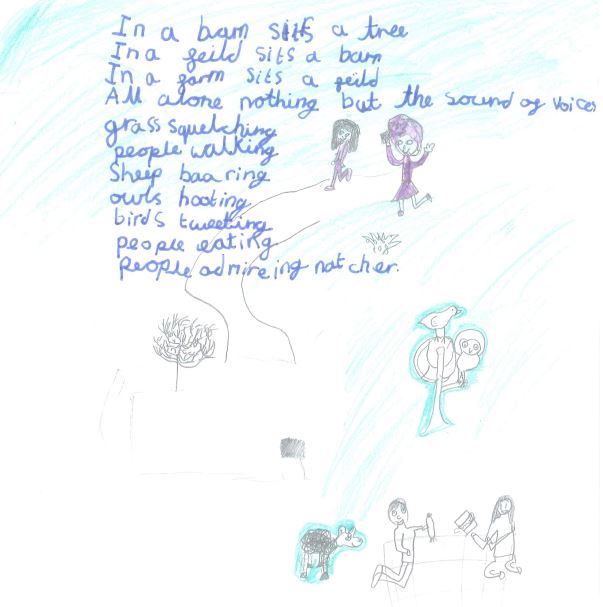 In a barn sits a tree
In a feild sits a barn
In a farm sits a feild
All alone nothing but the sound of voices
grass squelching
people walking
Sheep baaring
owls hooting
birds tweeting
people eating
people admireing natcher.